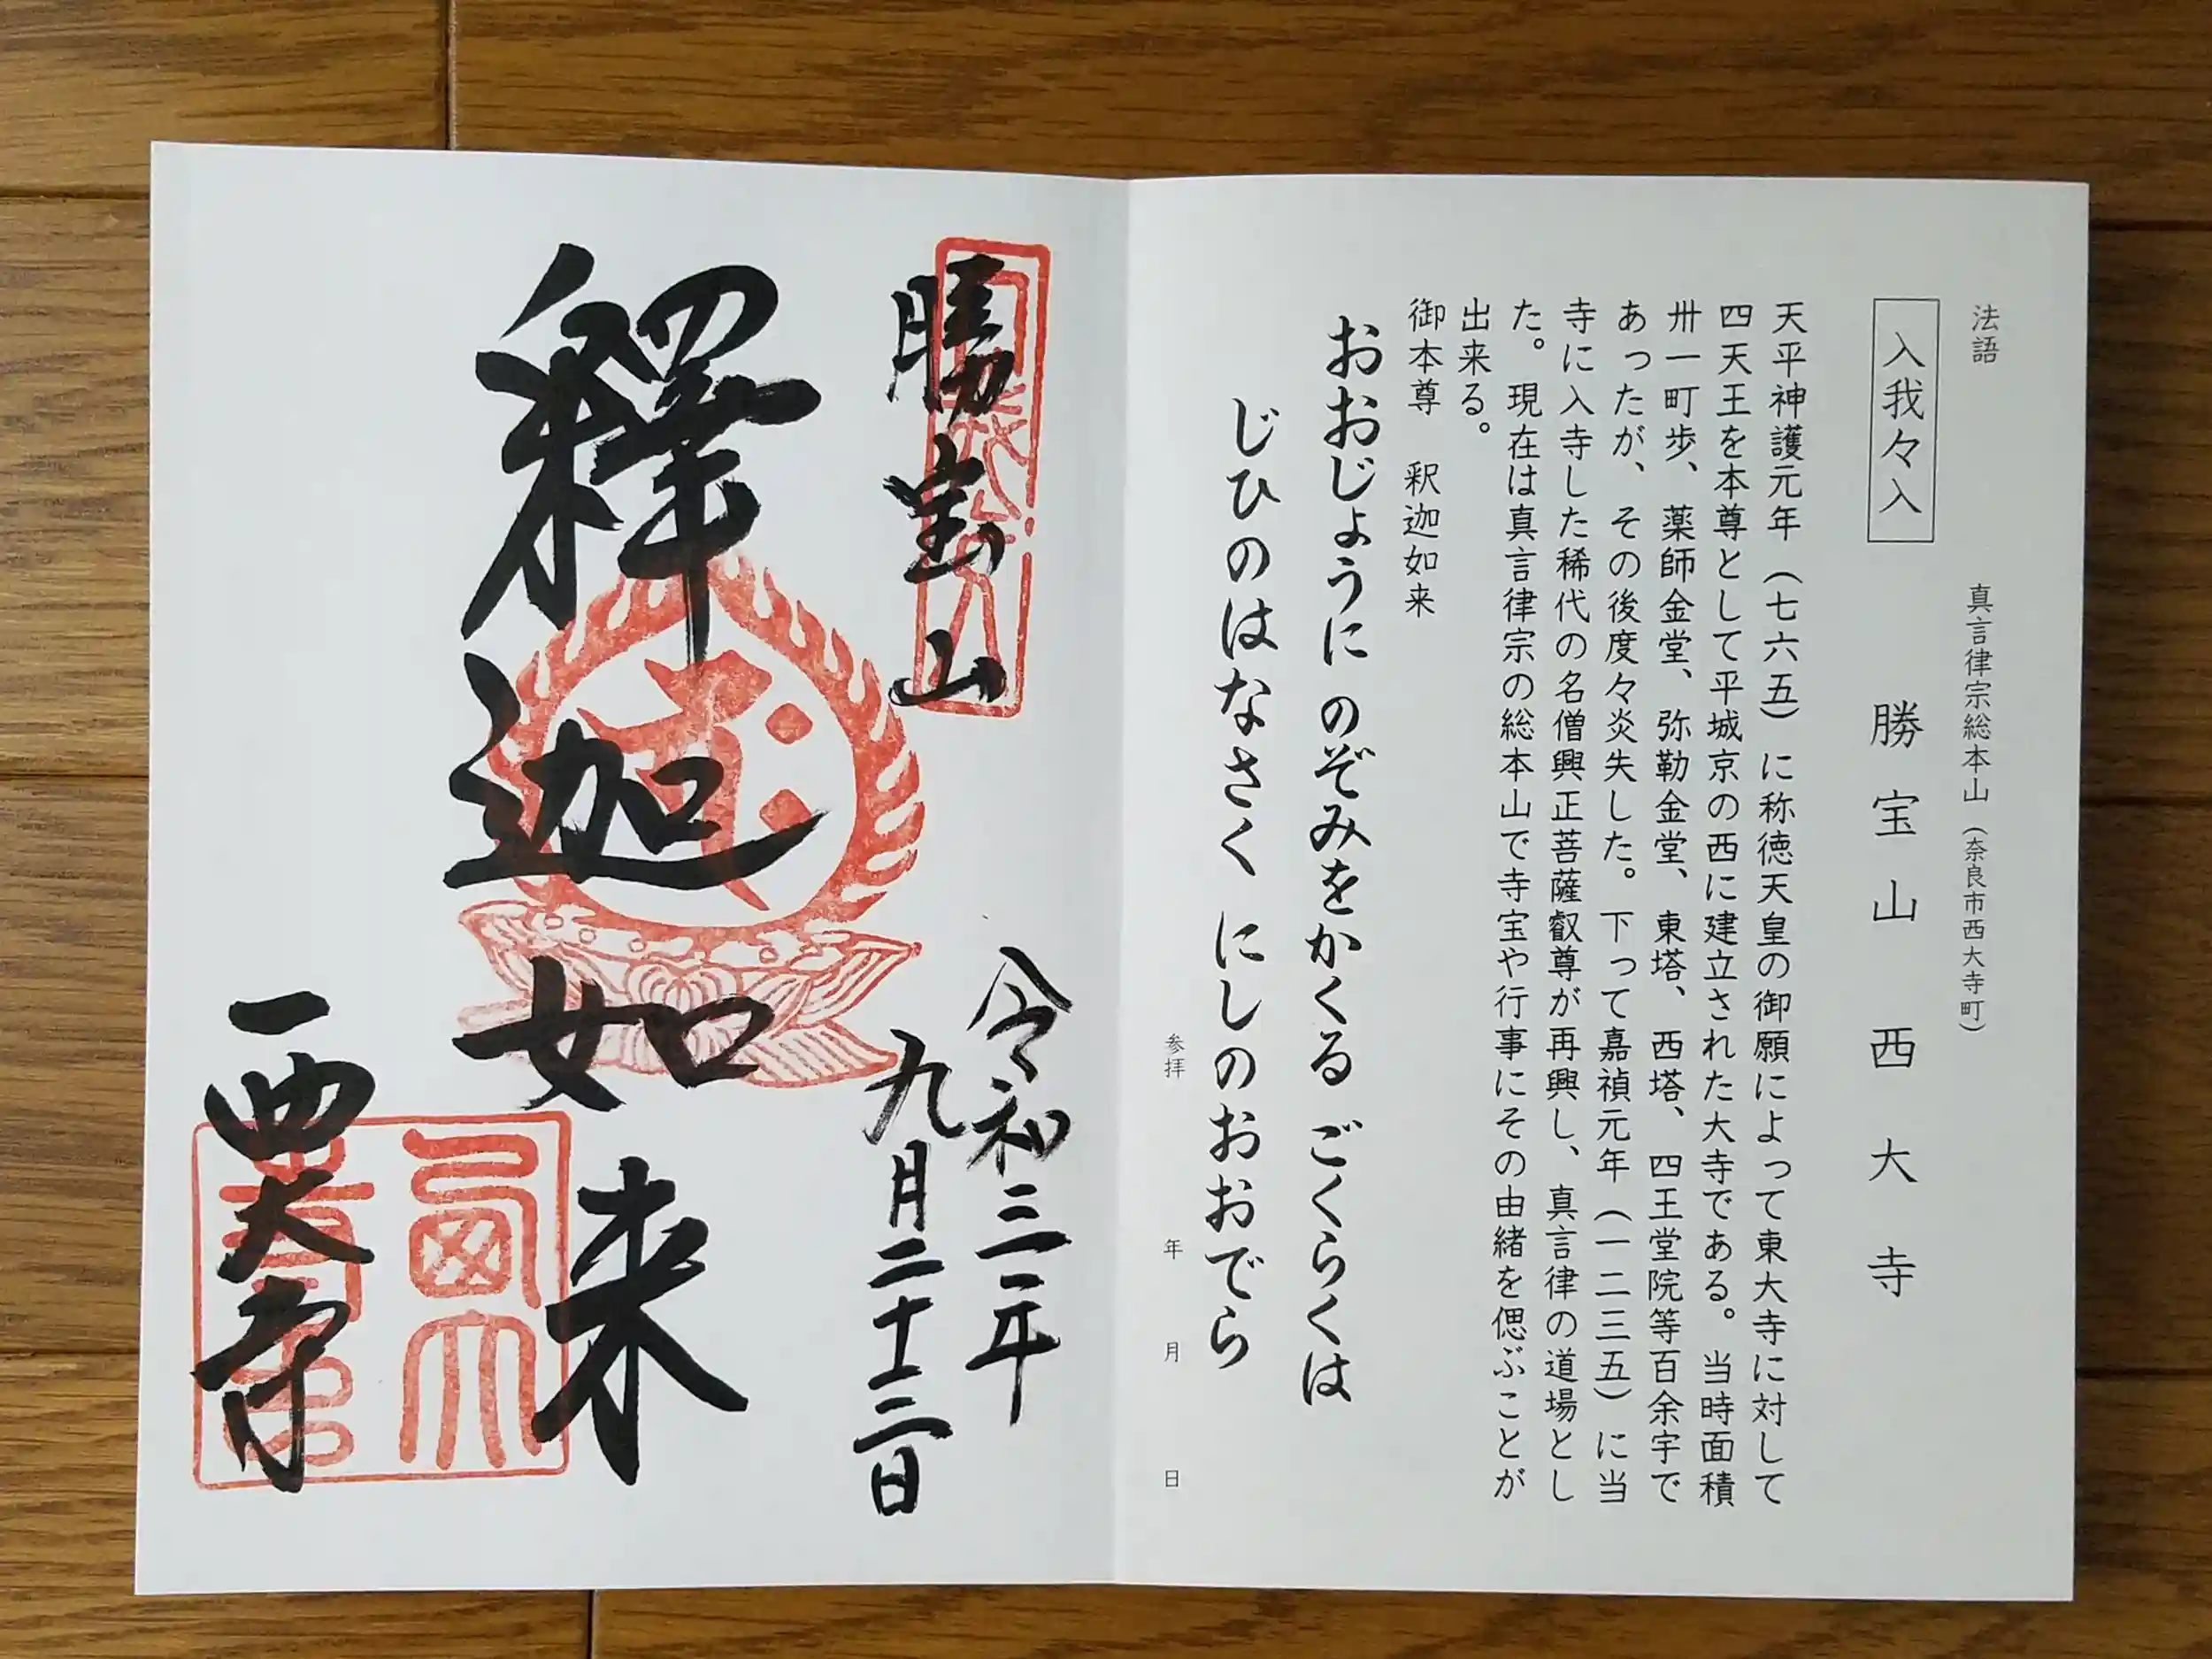 法語
真言律宗総本山（奈良市西大寺町）
入我々入
勝宝山 西大寺
天平神護元年（七六五）に称徳天皇の御願によって東大寺に対して
四天王を本尊として平城京の西に建立された大寺である。当時面積
卅一町歩、薬師金堂、弥勒金堂、東塔、西塔、四王堂院等百余宇で
あったが、その後度々炎失した。下って嘉禎元年（一二三五）に当
寺に入寺した稀代の名僧興正菩薩叡尊が再興し、真言律の道場とし
た。現在は真言律宗の総本山で寺宝や行事にその由緒を偲ぶことが
出来る。
御本尊 釈迦如来
おおじょうに のぞみをかくる ごくらくは
じひのはなさく にしのおおでら
参拝 年 月 日
勝宝山
令和三年
九月二十三日
釋迦如来
西大寺